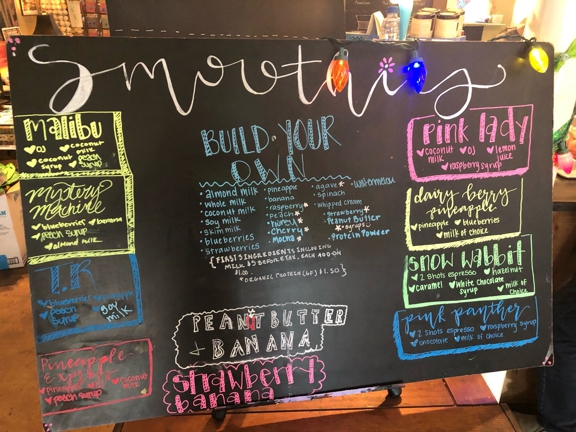 Smoothies
Malibu
OJ
coconut milk
coconut syrup
peach syrup
Mystery Machine
blueberries
banana
peach syrup
almond milk
T.R
blueberries
peach syrup
soy milk
Pineapple
pineapple
coconut milk
peach syrup
BUILD YOUR OWN
almond milk
whole milk
coconut milk
soy milk
skim milk
blueberries
strawberries
pineapple
banana
raspberry
peach
honey
cherry
mocha
agave
spinach
whipped cream
strawberry
Peanut Butter
syrups
Protein Powder
watermelon
FIRST 3 INGREDIENTS INCLUDING
MILK $5 BEFORE TAX, EACH ADD-ON
$1.00
ORGANIC PROTEIN $1.50
PEANUT BUTTER
+ BANANA
strawberry
banana
pink lady
coconut milk
OJ
lemon juice
raspberry syrup
dairy berry
pineapple
pineapple
blueberries
milk of choice
snow wabbit
2 shots espresso
hazelnut
caramel
white chocolate syrup
milk of choice
pink panther
2 shots espresso
raspberry syrup
chocolate
milk of choice